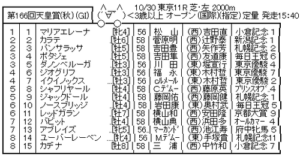 第166回天皇賞(秋)(GⅠ) 10/30 東京11R 芝・左 2000m
<3歳以上 オープン(国際)(指定)定量 発走15:40
1 1 マリアエレーナ 牝4 56 松山 (西)吉田直 小倉記念1
2 2 カラテ 牡6 58 (西)辻野
2 3 パンサラッサ 牡5 58 吉田豊 (西)矢作芳 札幌記念2
3 4 ポタジェ 牡5 58 吉田隼 (西)友道康 毎日王冠6
3 5 ダノンベルーガ 牡3 56 川田 (東)堀宣行 東京優駿4
4 6 ジオグリフ 牡3 56 福永 (東)木村哲 東京優駿7
4 7 イクイノックス 牡3 56 (東)木村哲 東京優駿2
5 8 シャフリヤール 牡4 58 (西)藤原英
5 9 ジャックドール 牡4 58 藤岡佑 (西)藤岡健 札幌記念1
6 10 ノースブリッジ 牡4 58 岩田康 (東)奥村武 毎日王冠5
6 11 レッドガラン 牡7 58 横山和 (西)安田隆 京都大賞9
7 12 バビット 牡5 58 横山典 (西)浜田多 オールカマー4
7 13 アブレイズ 牝5 56 (西)池江寿 府中牝馬5
8 14 ユーバーレーベン 牝4 56 (東)手塚貴 札幌記念11
8 15 カデナ 牡8 58 三浦 (西)中竹和 小倉記念7